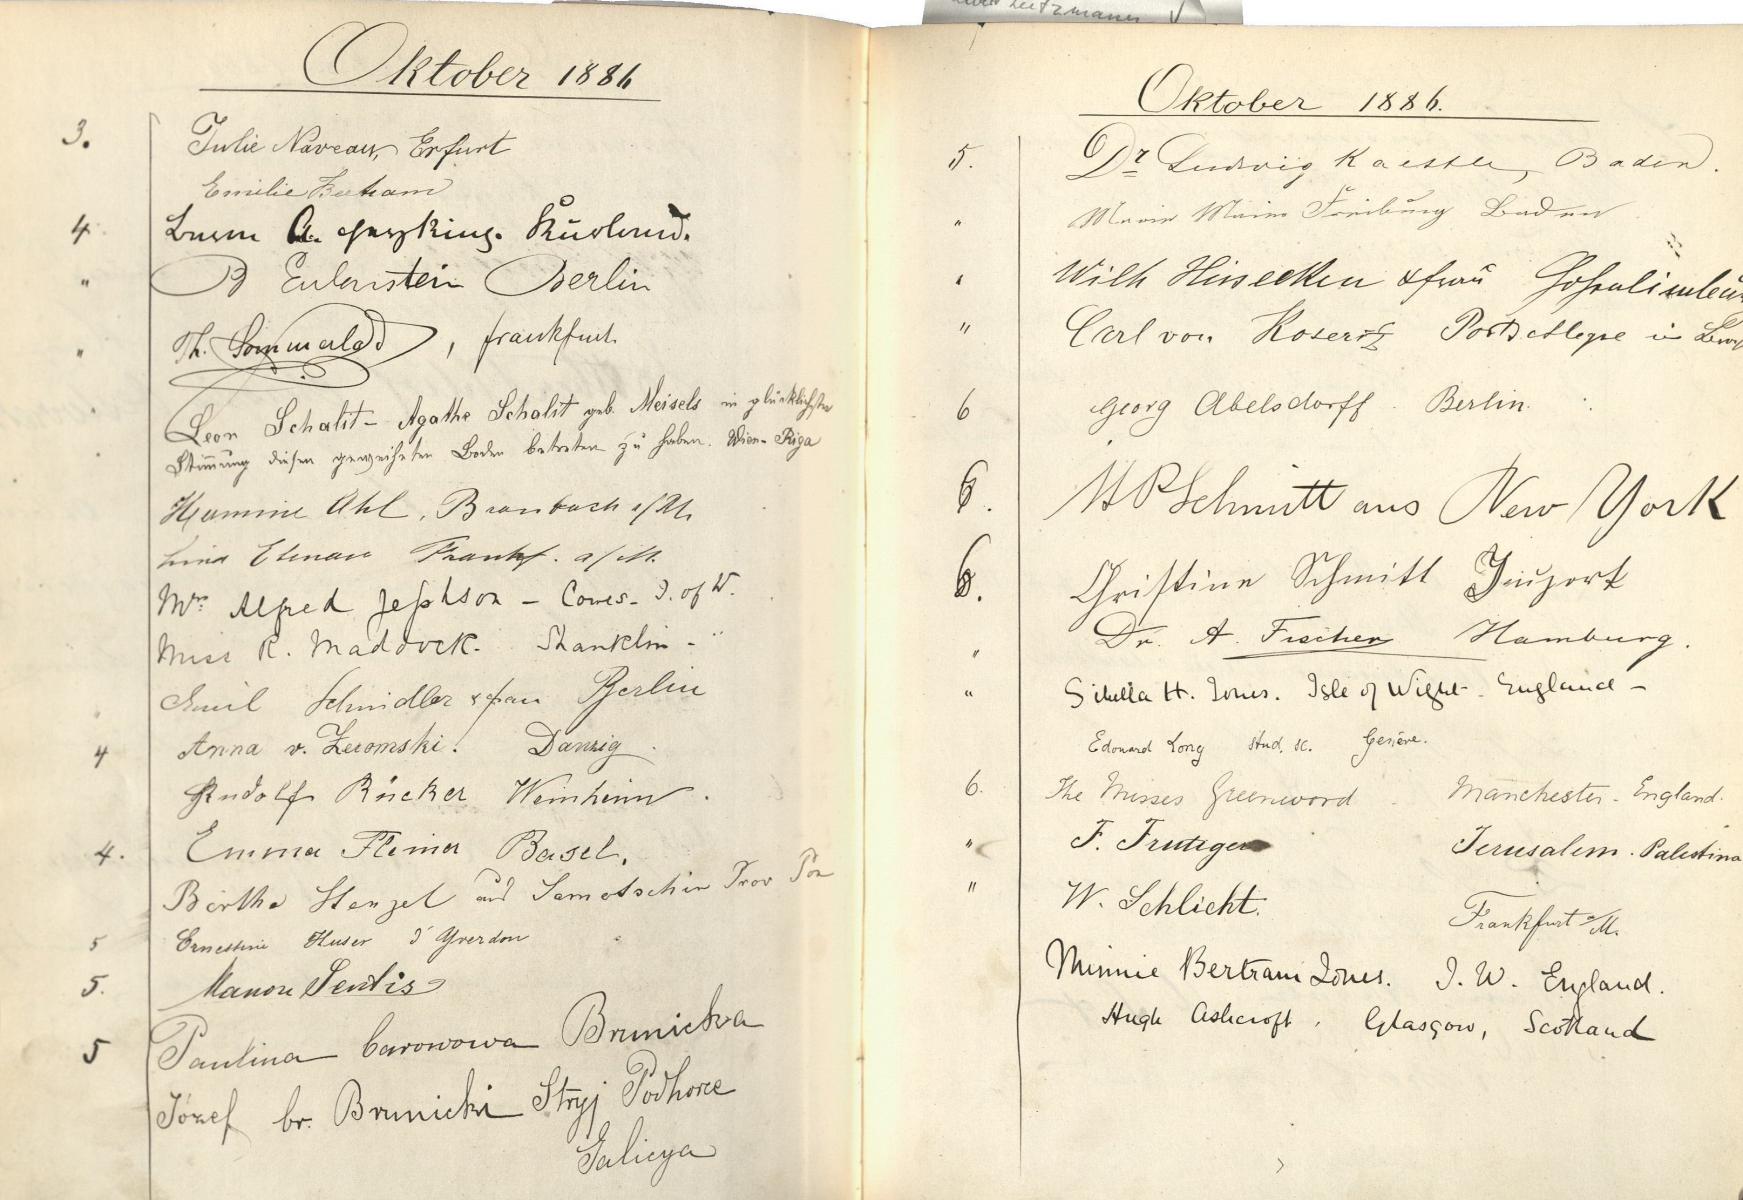 Leitzmann
Oktober 1886
3. Julie Naveau, Erfurt
Emilie
4. Kurland.
" B Eulenstein Berlin
" Th. Sommerlad, Frankfurt
Leon Schalit - Agathe Schalit geb. Meisels in glücklichster
Stimmung diesen geweihten Boden betreten zu haben. Wien - Riga
Ahl, Braubach a/Rh.
Frankf. a/M.
Mrs Alfred Jephson - Cowes - I. of W.
Miss R. Maddock. Shanklin - "
Emil Schindler & Frau Berlin
4 Anna v. Zeromski. Danzig.
Rudolf Rücker Weinheim.
4. Emma Basel.
Berthe Stenzel aus Samotschin Prov Pos
5 Ernestine d'Yverdon
5. Manon Sentis
5 Paulina baronowa Brunicka
Józef br. Brunicki Stryj Podhorce
Galicya
Oktober 1886.
5. Dr Ludwig Baden.
" Marie Freiburg Baden
" Wilh & Frau
" Carl von Koseritz Porto Alegre in
6 Georg Abelsdorff. Berlin.
6. H P Schmitt aus New York
6. Christine Schmitt
" Dr. A. Fischer Hamburg.
" Sibella H. Jones. Isle of Wight - England -
Edouard Long stud. sc. Genève.
6. The Misses Greenwood. Manchester - England.
" F. Frutiger Jerusalem. Palestina
" W. Schlicht. Frankfurt a/M.
Minnie Bertram Jones. I. W. England.
Hugh Ashcroft, Glasgow, Scotland